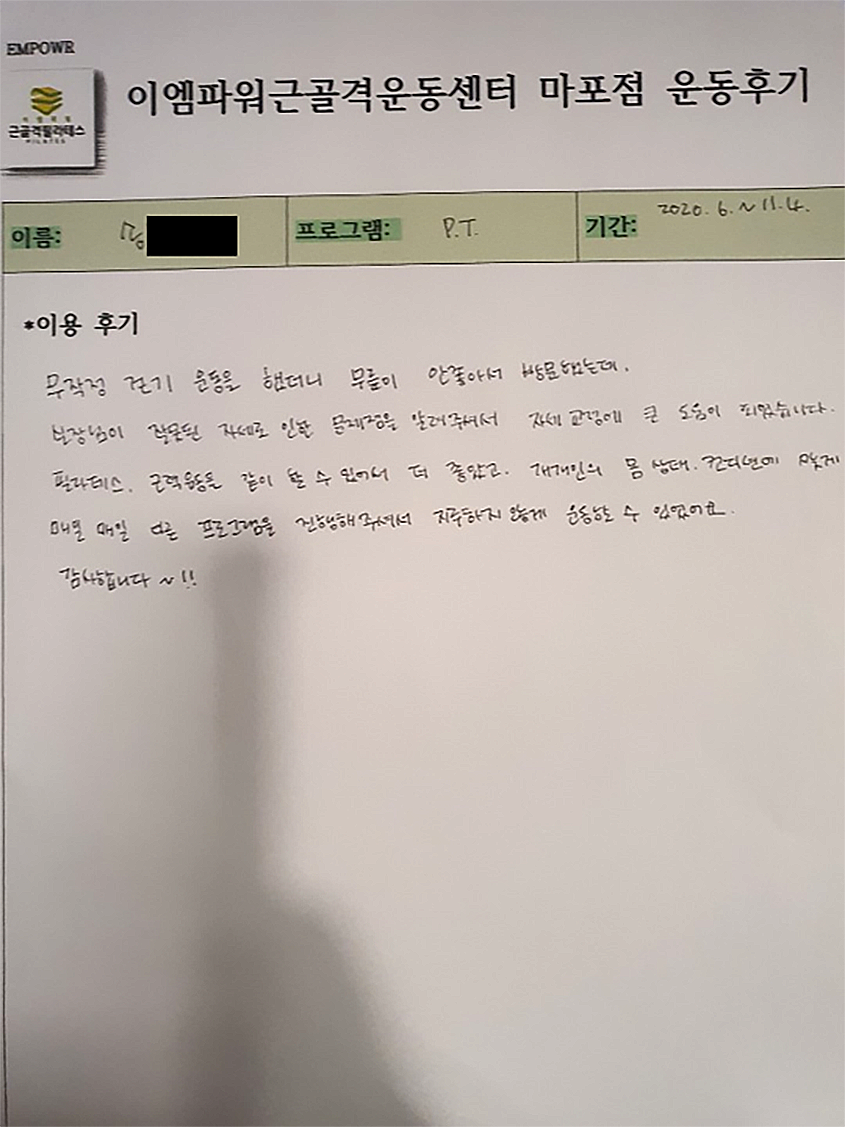 EMPOWR
이엠파워
근골격필라테스
PILATES
이엠파워근골격운동센터 마포점 운동후기
이름: 프로그램: P.T. 기간: 2020. 6. ~ 11.4.
*이용 후기
무작정 걷기 운동을 했더니 무릎이 안좋아서 방문했는데.
원장님이 잘못된 자세로 인한 문제점을 알려주셔서 자세 교정에 큰 도움이 되었습니다.
필라테스, 근력운동을 같이 할 수 있어서 더 좋았고. 개개인의 몸 상태. 컨디션에 맞게
매일 매일 다른 프로그램을 진행해주셔서 지루하지 않게 운동할 수 있었어요.
감사합니다 ~!!